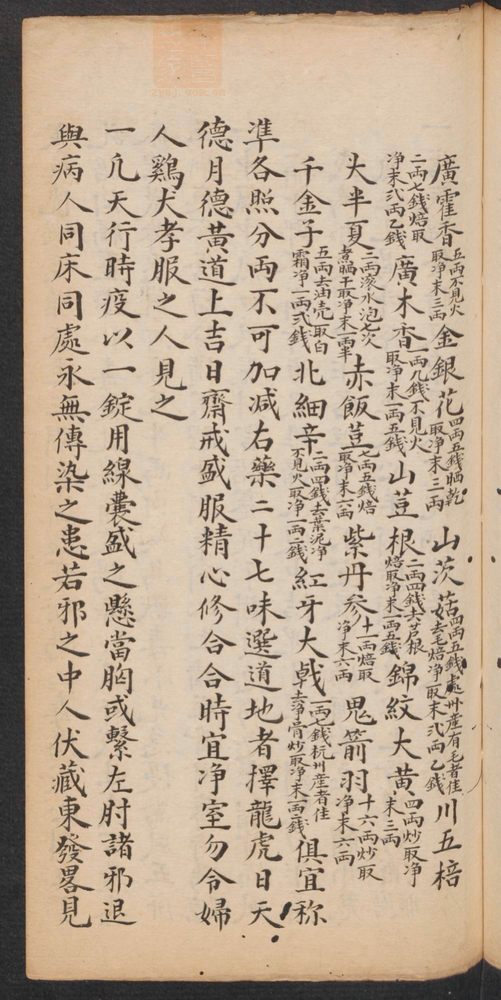 廣霍香五両不見火取净末三両金銀花四両五錢晒乾取净末三両山茨菇四両五錢處州産有毛者佳去毛焙净取末弍両乙錢川五棓
二両七錢焙取净末弍両乙錢廣木香一両九錢不見火取净末一両五錢山荳根二両四錢去芦根焙取净末一両五錢錦紋大黄四両炒取净末三両
大半夏二両滚水泡七次煮晒干取净末一両半赤飯荳七両五錢焙取净末一両紫丹参十一両焙取净末六両鬼箭羽十六両炒取净末六両
千金子五両去油壳取白霜净一両弍錢北細辛二両四錢去葉泥净不見火取净一両二錢紅牙大戟一両七錢杭州産者佳去净骨炒取净末一両二錢俱宜称
凖各照分両不可加减右藥二十七味選道地者擇龍虎日天
德月德黄道上吉日齋戒盛服精心修合合時宜净室勿令婦
人鷄犬孝服之人見之
一凢天行時疫以一錠用線囊盛之懸當胸或繫左肘諸邪退
與病人同床同處永無傳染之患若邪之中人伏藏東發畧見